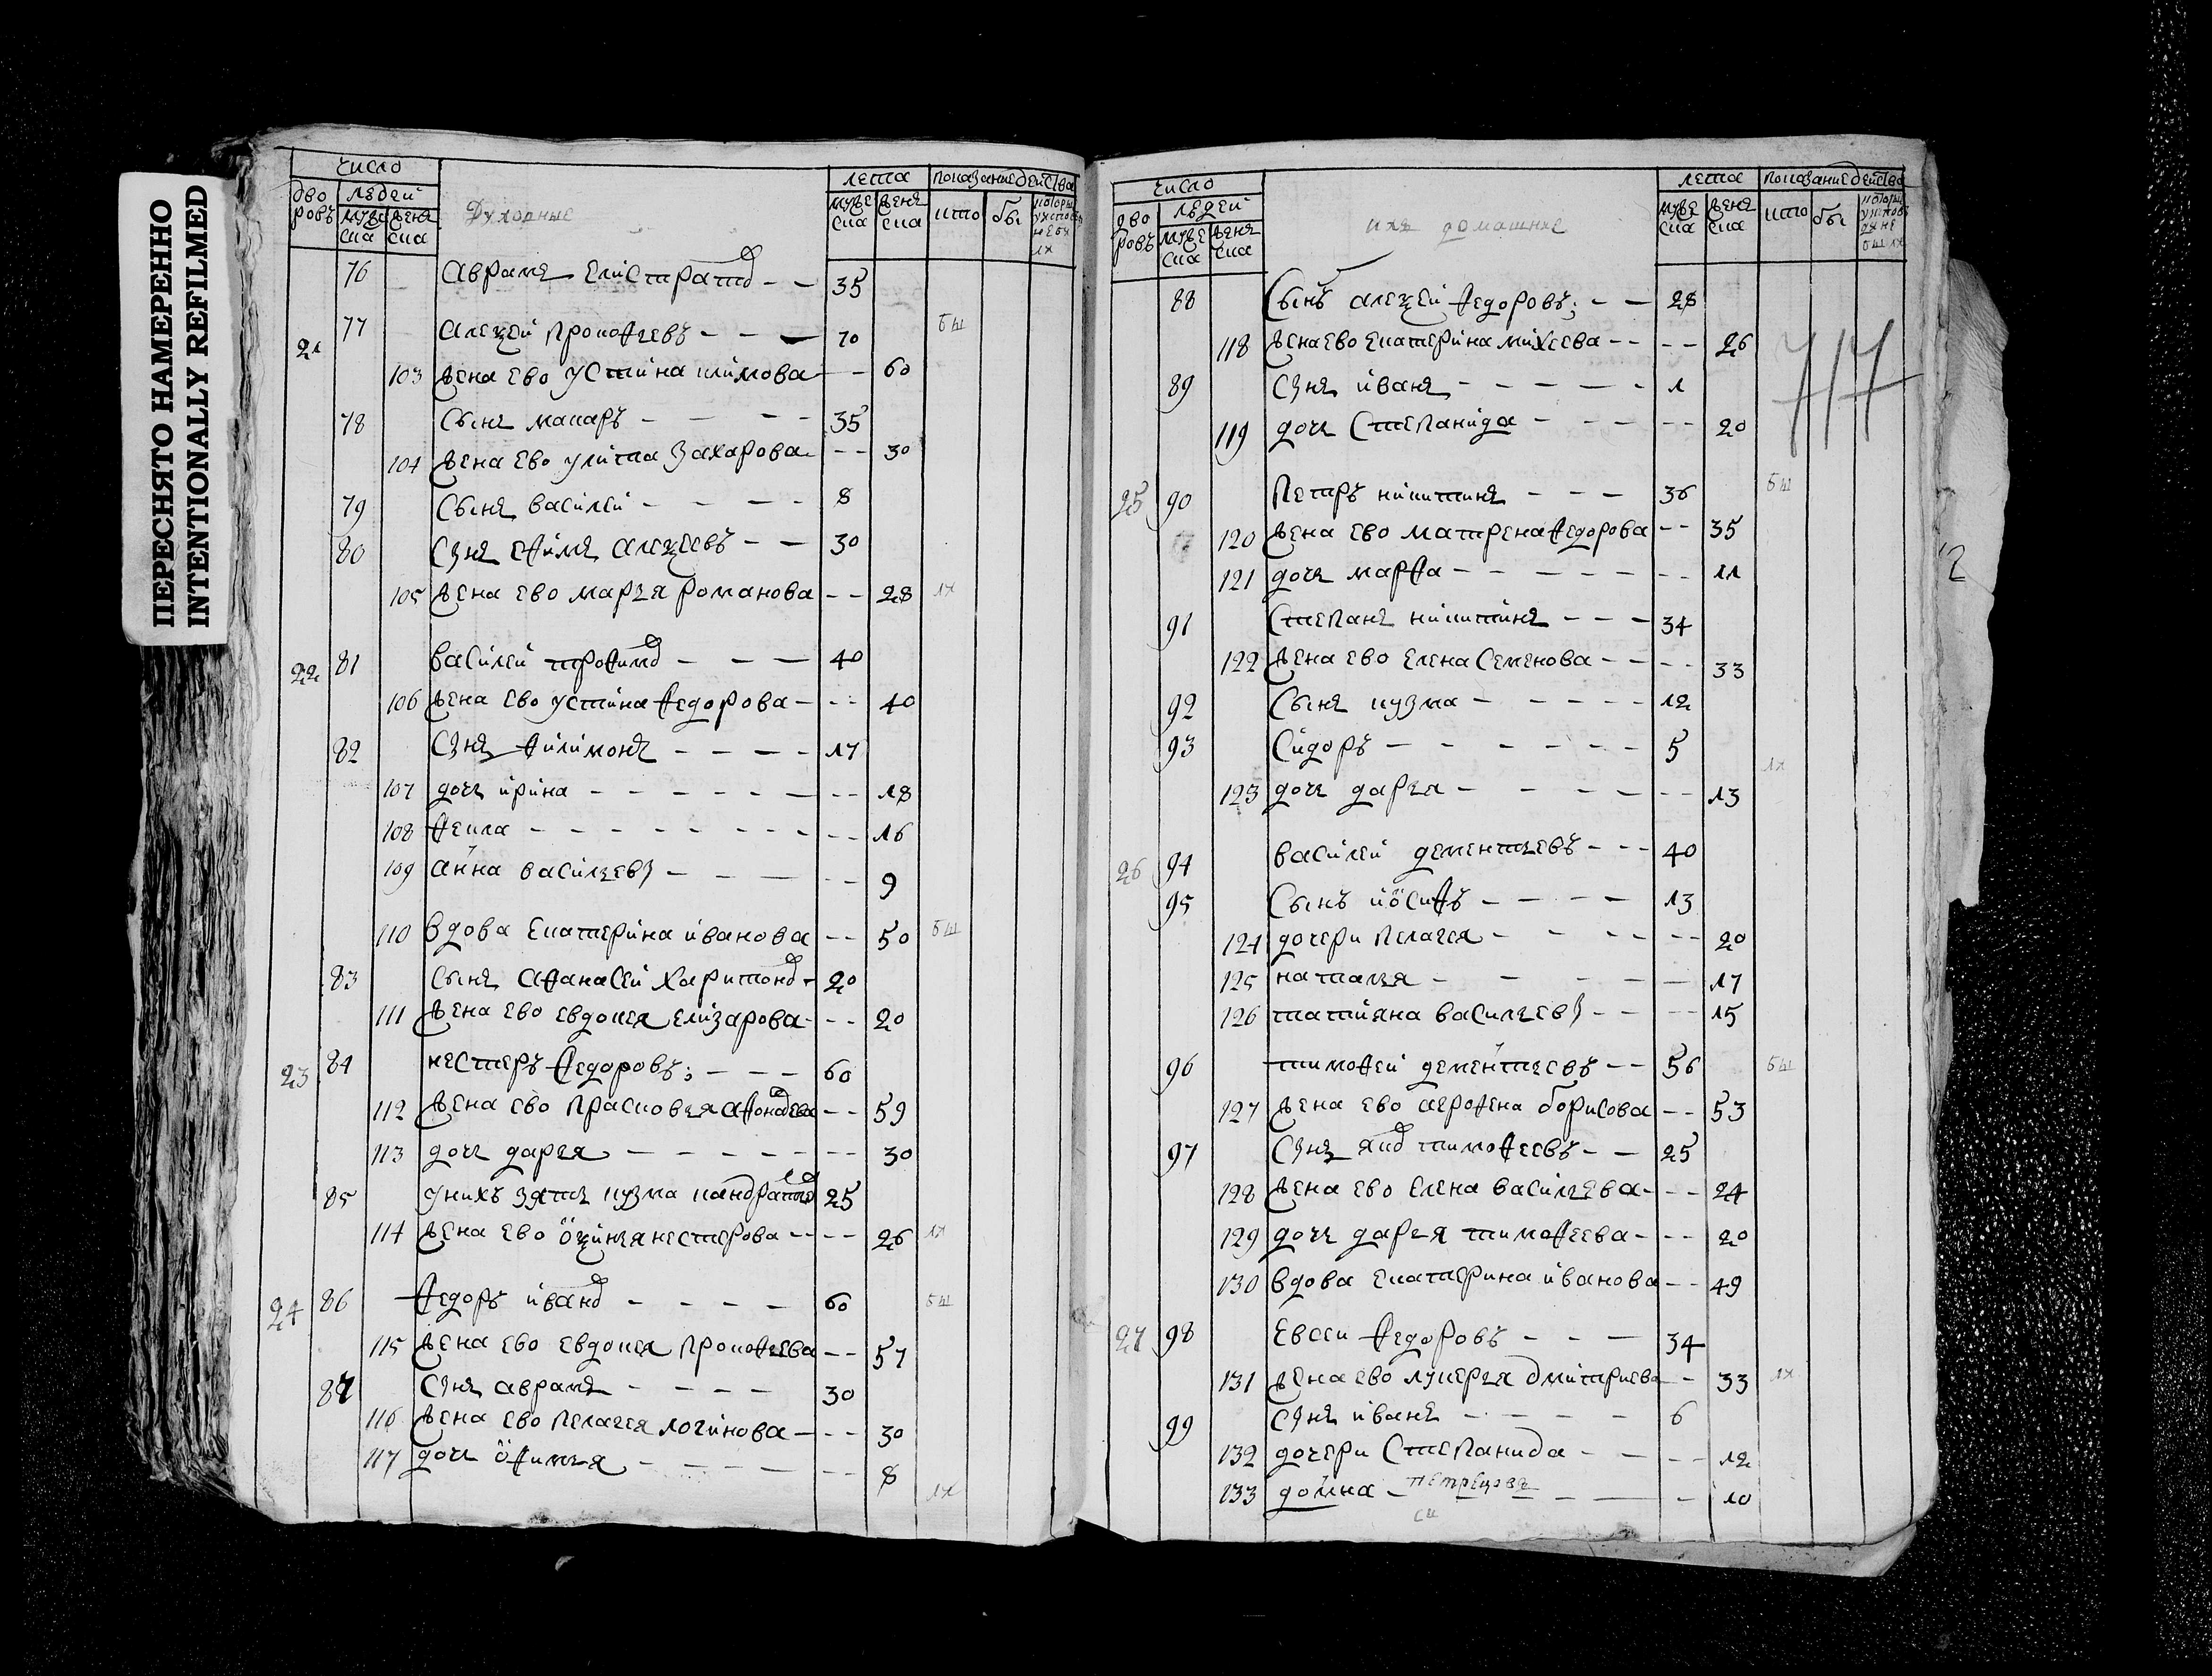 ПЕРЕСНЯТО НАМЕРЕННО
INTENTIONALLY REFILMED
число
дворовъ людей мужеска женска
Духовные
лета мужеска женска
показание действа кто бы
76 Аврамъ Елистратов 35
21 77 Алеѯей Прокофьевъ 70 бы
103 жена ево устина климова 60
78 Сынъ макаръ 35
104 жена ево улита Захарова 30
79 Сынъ василеи 8
80 Сꙋнъ ефимъ алеѯеевъ 30
105 жена ево марья романова 28 ли
22 81 василеи трофимов 40
106 жена ево устина федорова 40
82 Сꙋнъ филимонъ 17
107 дочь ирина 18
108 фекла 16
109 анна васильевы 9
110 вдова Екатерина иванова 50 бы
83 Сынъ Афанасей Харитонов 20
111 жена ево евдокея елизарова 20
23 84 нестеръ федоровъ 60
112 жена ево Прасковья афонасева 59
113 дочь дарья 30
85 у нихъ зять кузма кандратев 25
114 жена ево оѯинья нестерова 26 ли
24 86 федоръ иванов 60 бы
115 жена ево евдокея Прокофьева 57
87 Сꙋнъ аврамъ 30
116 жена ево Пелагея логинова 30
117 дочь офимья 8 ли
число
дворовъ людей мужеска женска
ихъ домашние
лета мужеска женска
показание действа кто бы
88 Сынъ алеѯей федоровъ 28
118 жена ево Екатерина михеева 26
717
89 Сꙋнъ иванъ 1
119 дочь Степанида 20
25 90 Петръ никитинъ 36 бы
120 жена ево матрена федорова 35
121 дочь марфа 11
91 Степанъ никитинъ 34
122 жена ево Елена Семенова 33
92 Сынъ кузма 12
93 Сидоръ 5 ли
123 дочь дарья 13
26 94 василеи дементьевъ 40
95 Сынъ иосифъ 13
124 дочери Пелагея 20
125 наталья 17
126 татияна васильевы 15
96 тимофеи дементьевъ 56 бы
127 жена ево агрофена борисова 53
97 Сꙋнъ яков тимофеевъ 25
128 жена ево Елена васильева 24
129 дочь дарья тимофеева 20
130 вдова Екатерина иванова 49
27 98 Евсеи федоровъ 34
131 жена ево лукерья дмитриева 33 ли
99 Сꙋнъ иванъ 6
132 дочери Степанида 12
133 домна 10
Петръцовъ